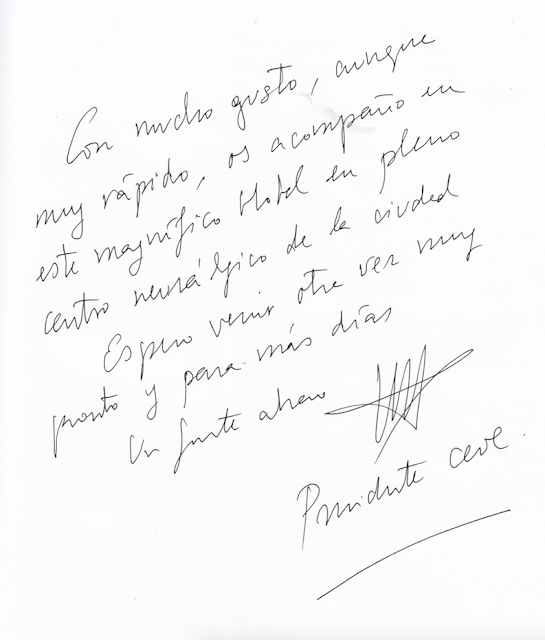 Con mucho gusto, aunque
muy rápido, os acompaño en
este magnífico Hotel en pleno
centro neurálgico de la ciudad
Espero venir otra vez muy
pronto y para más días
Un fuerte abrazo
Presidente CEOE.